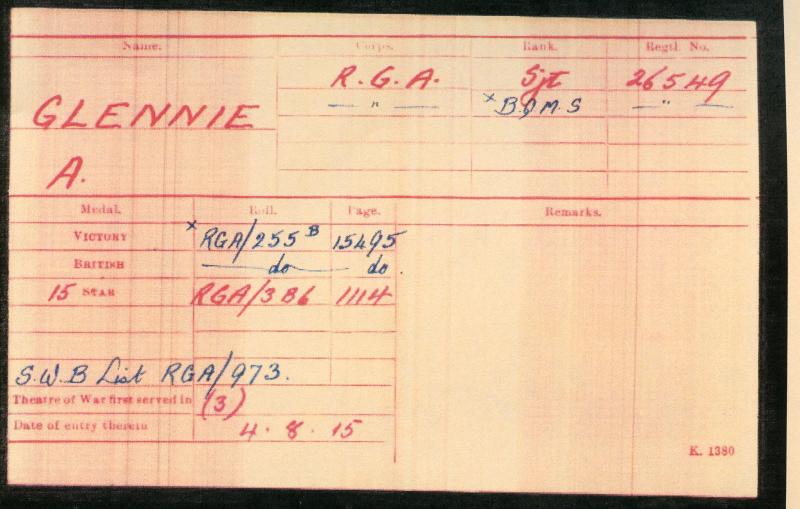 Name. Corps. Rank. Regtl. No.
R.G.A. Sjt 26549
— " — × B.Q.M.S — " —
GLENNIE
A.
Medal. Roll. Page. Remarks.
VICTORY × RGA/255 B 15495
BRITISH do do.
15 STAR RGA/3 B6 1114
S.W.B List RGA/973.
Theatre of War first served in (3)
Date of entry therein 4.8.15
K. 1380